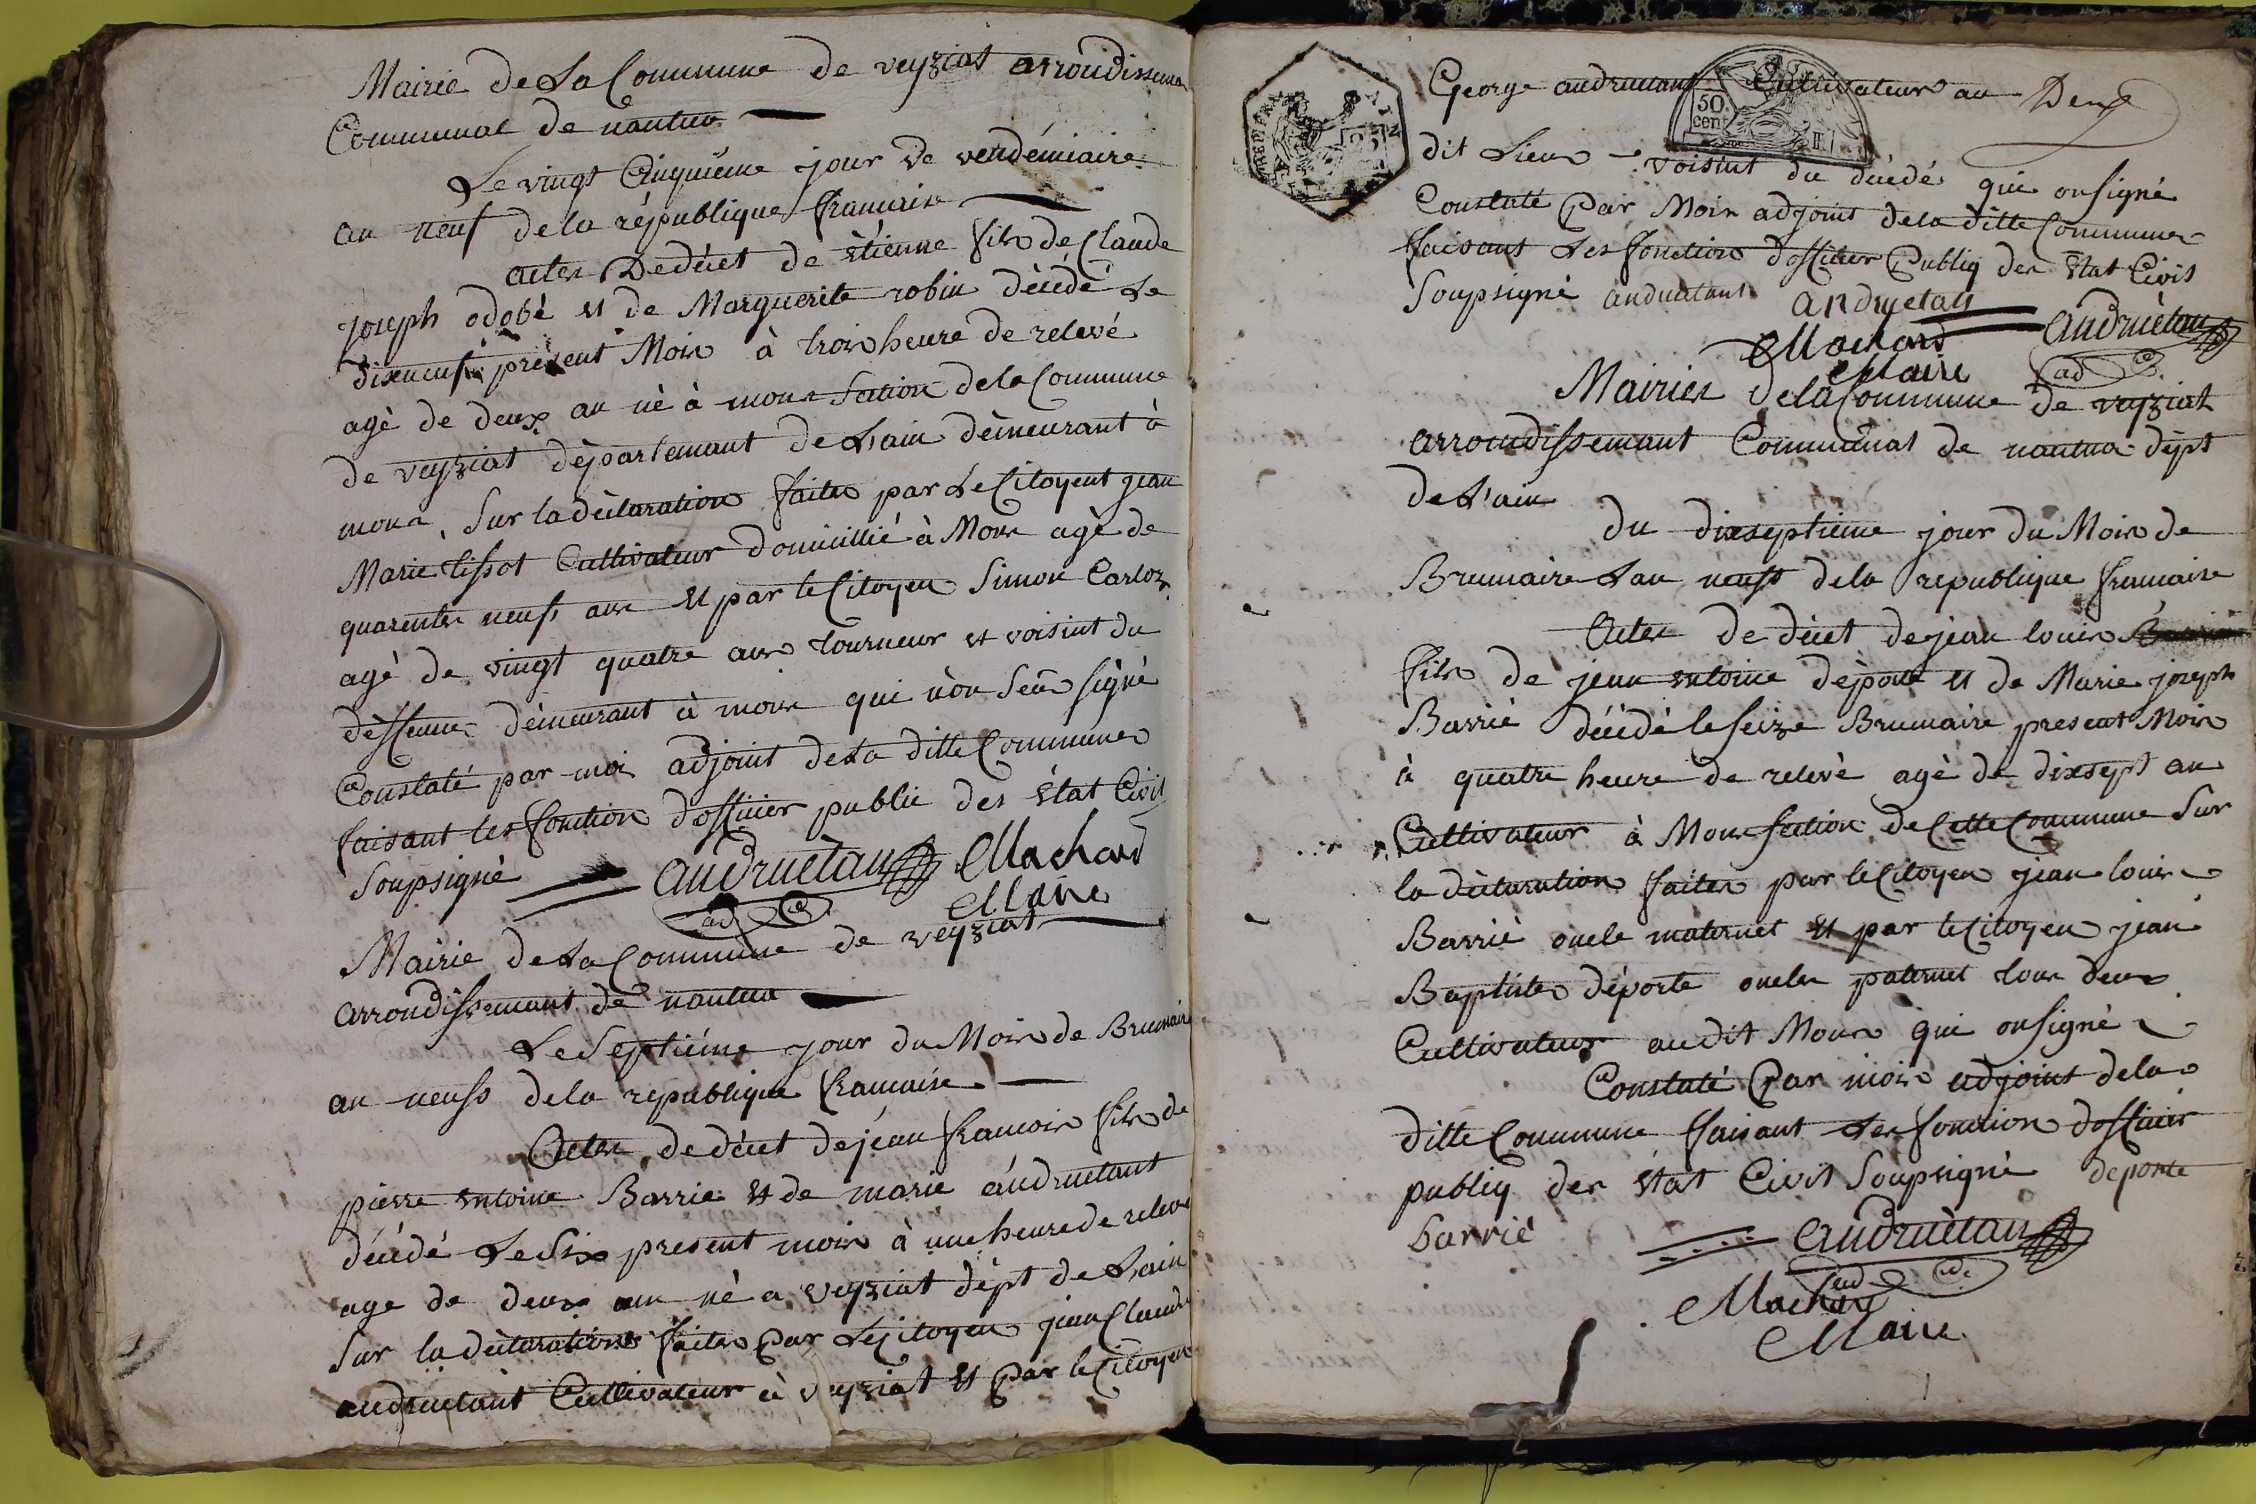 Mairie de La Commune de veyziat arrondisseme
Communal de nantua
Le vingt Cinquiéme jour de vendémiaire
an neuf de la république francaise
actes De décet de étienne fils de Claude
joseph odobé et de Marguerite robin décédé Le
dixneuf présent Mois à trois heure de relevé
agè de deux an nè à mons Section de la Commune
de veyziat départemant de L'ain démeurant à
mons, Sur la déclaration faites par Le Citoyent jean
Marie tissot Cultivateur domicillié à Mons agè de
quarentes neuf ans et par le Citoyen Simon Carloz
agè de vingt quatre ans tourneur et voisint du
déffeunt démeurant à mons qui n'on Seû signé
Constaté par moi adjoint de La ditte Communes
faisant les fonction d'officier public des état Civil
Soupsigné andruètan Machard
ad Maire
Mairie de La Commune de veyziat
arrondissemant de nantua
Le Septiéme jour du Mois de Brumaire
an neufs de la republique francaise
Actes de décet de jéan francois fils de
pierre entoine Barrie et de marie andruetant
décédé Le Six present mois à une heure de relevé
age de deux an né a veyziat dépt de L'ain
Sur la déclarations faites par Le Citoyen jean Claude
andruetant Cultivateur à veyziat et par le Citoyen
George andruetant Cultivateur au Deux
50 cent
25
dit Lieus voisint du décédé qui on signé
Constaté Par Mois adjoint de la ditte Communes
faisant Les fonction d'officier Publiq des état Civil
Soupsigné andruetant andruetan
Machard andruètan
Maire ad
Mairies de la Commune de veyziat
arrondissemant Communal de nantua dépt
de L'ain
du dixseptieme jour du Mois de
Brumaire Lan neufs de la republique francaise
Actes de décet de jean louis
fils de jean entoine déporte et de Marie joseph
Barrié décédé le seize Brumaire present Mois
à quatre heure de relevè agè de dixsept an
Cultivateur à Mons section de Cette Commune Sur
la déclaration faites par le Citoyen jean louis
Barrié oncle maternet et par le Citoyen jean
Baptistes déporte oncles paternet tous deux
Cultivateur audit Mons qui on signé
Constaté Par mois adjoint de la
ditte Commune faisant Les fonction d'officier
publiq des état Civil Soupsigné deporte
barrié andruètan
ad
Machard
Maire